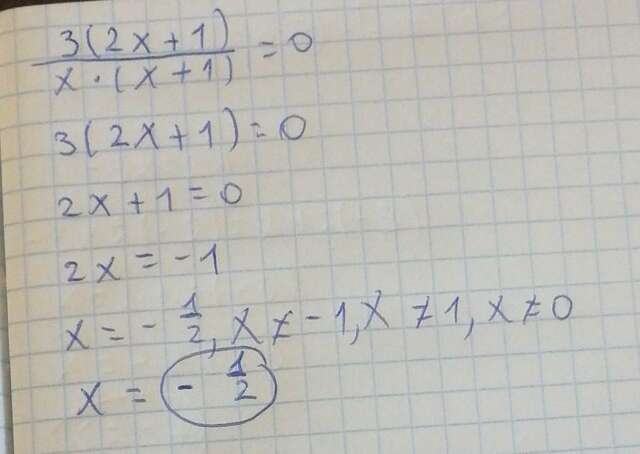 3(2x+1)/x·(x+1) = 0
3(2x+1)=0
2x+1=0
2x = -1
x = -1/2, x ≠ -1, x ≠ 1, x ≠ 0
x = -1/2